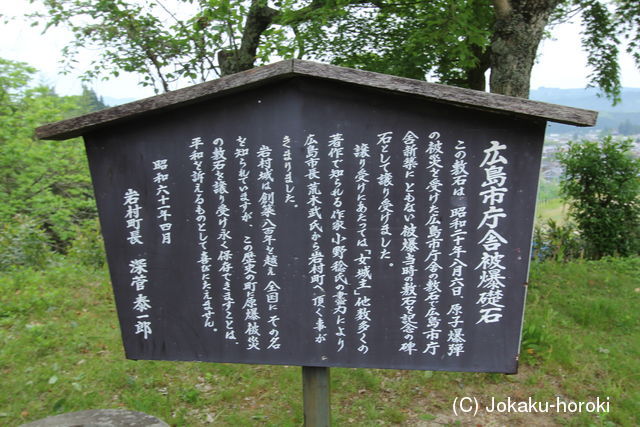 広島市庁舎被爆礎石
この敷石は、昭和二十年八月六日、原子爆弾
の被災を受けた広島市庁舎の敷石で広島市庁
舎新築にともない被爆当時の敷石を記念の碑
石として譲り受けました。
譲り受けにあたっては「女城主」他数多くの
著作で知られる作家小野稔氏の尽力により
広島市長 荒木武氏から岩村町へ頂く事が
きまりました。
岩村城は創築八百年を越え全国にその名
を知られていますが、この歴史の町に原爆被災
の敷石を譲り受け永く保存できますことは
平和を訴えるものとして喜びにたえません。
昭和六十一年四月
岩村町長 深菅泰一郎
(C) Jokaku-ho.com